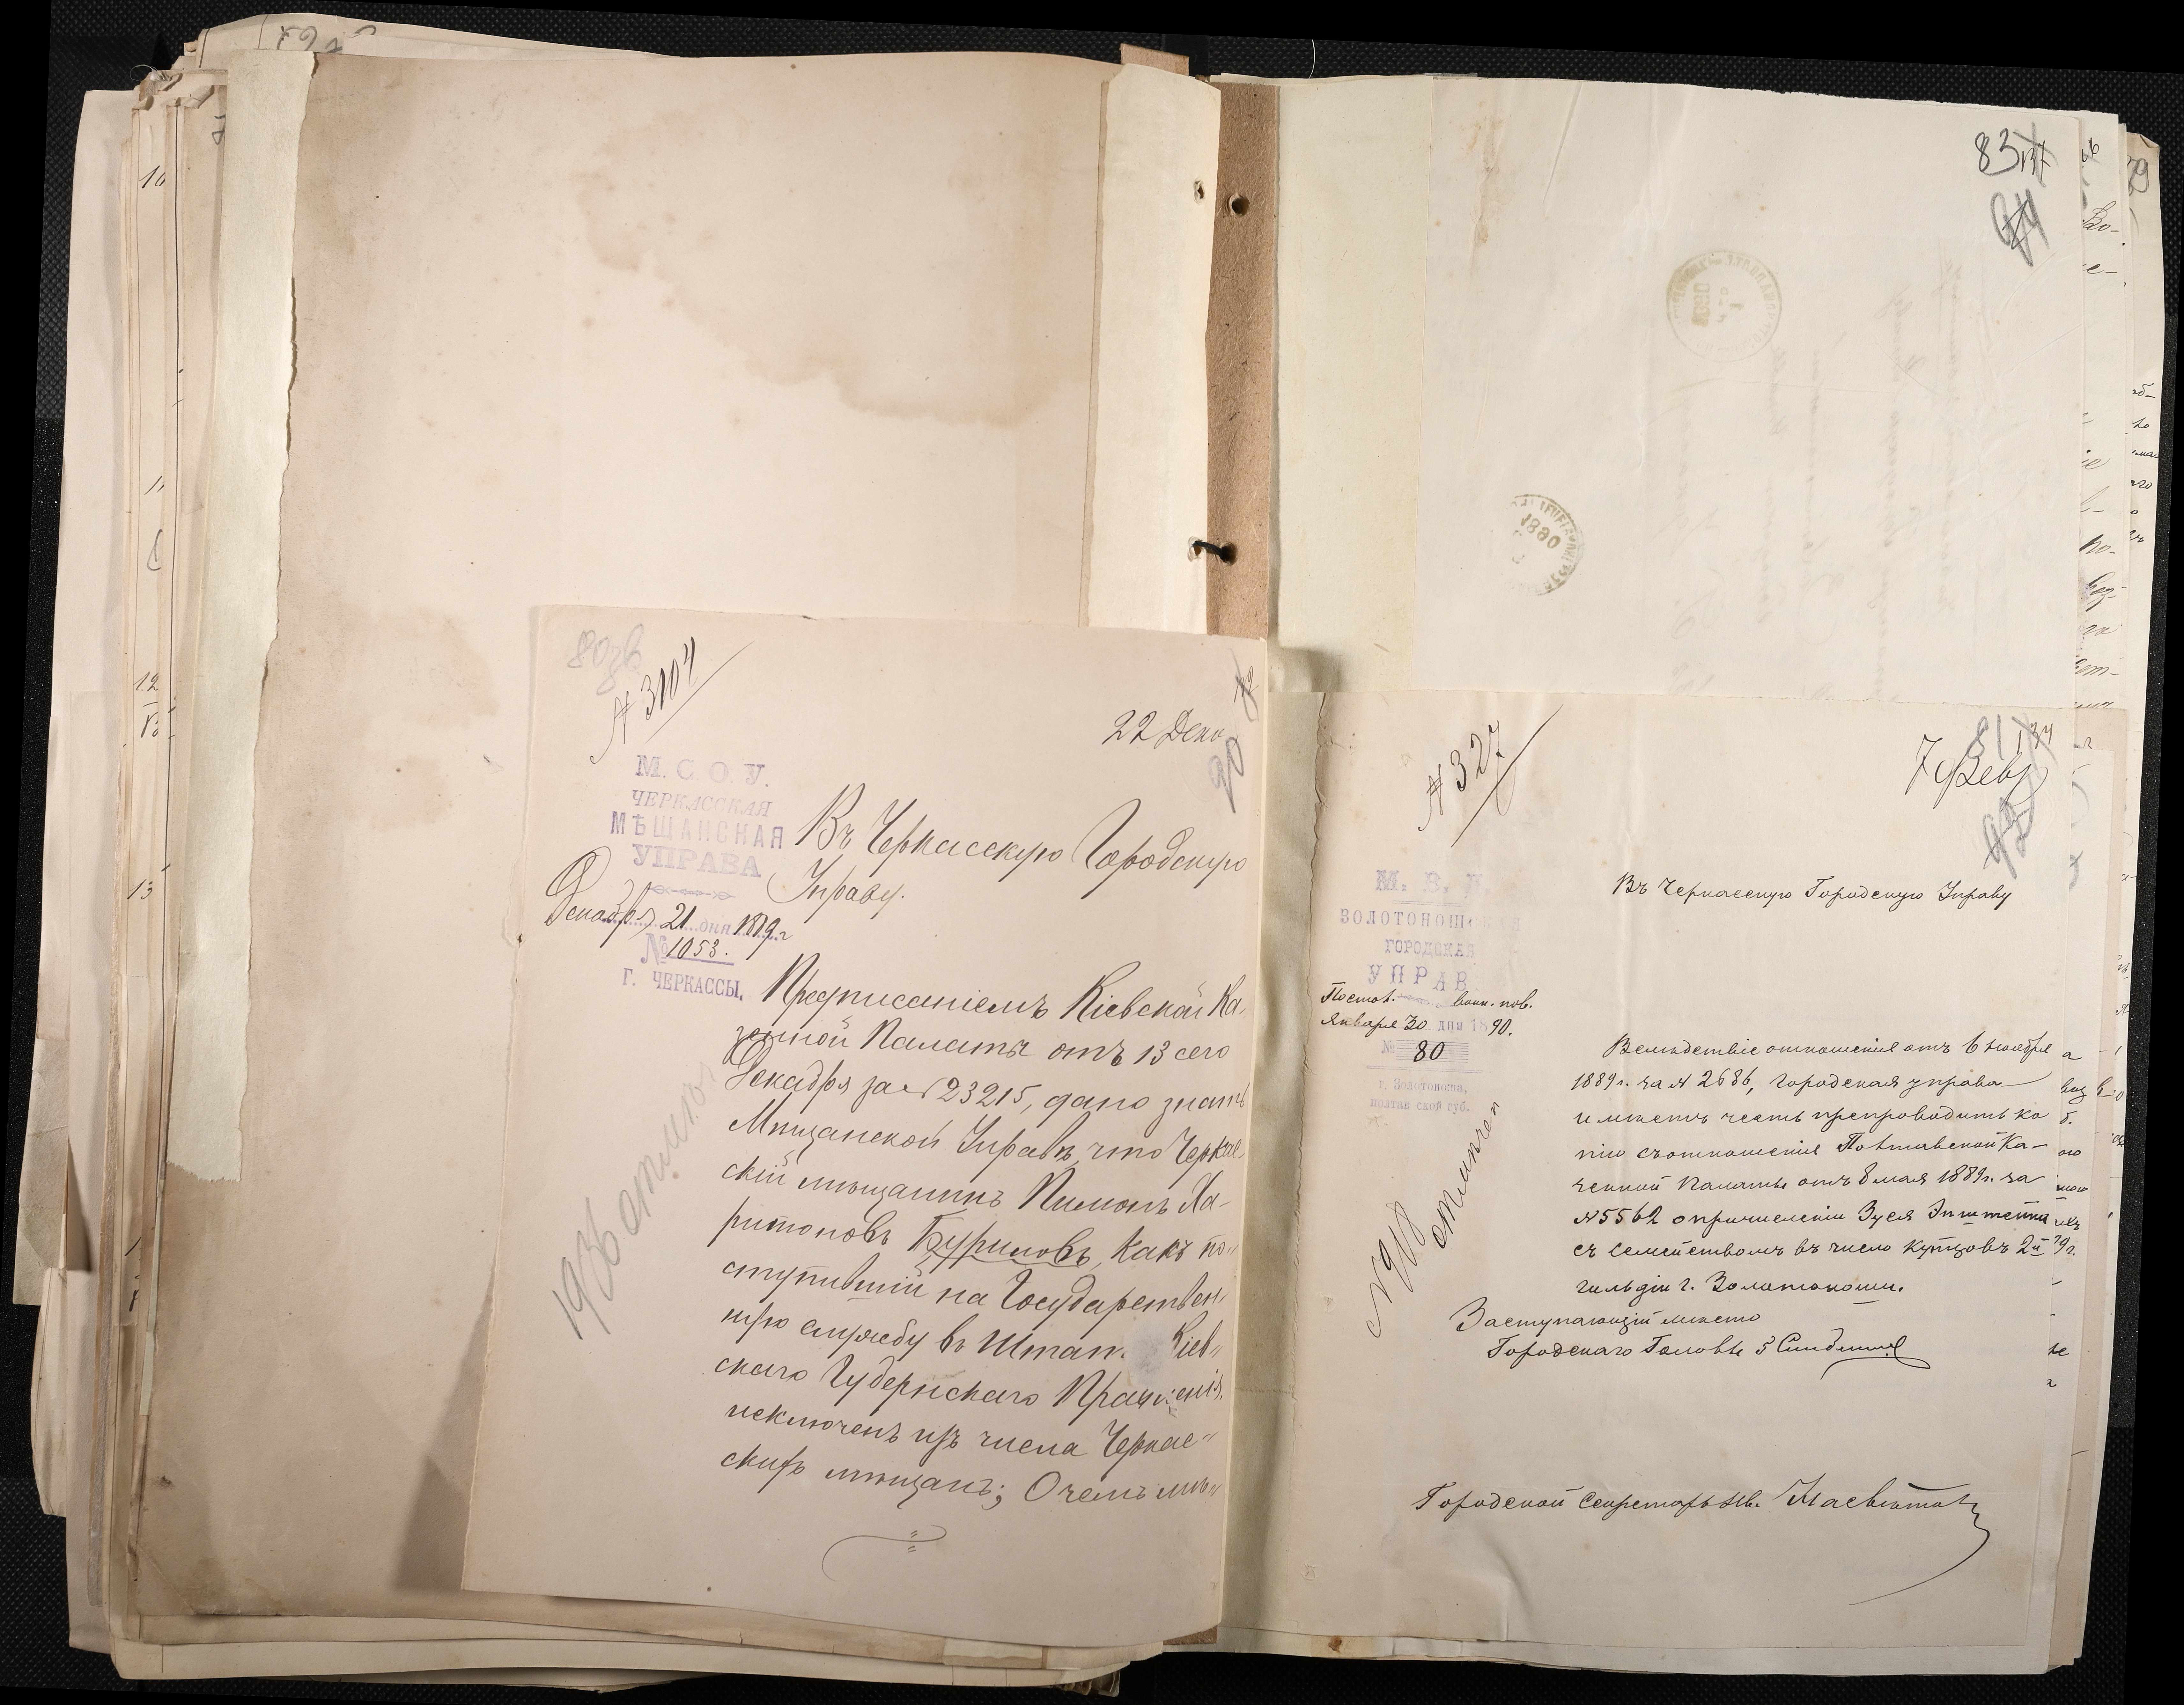 80
№ 3104
22 Дека
90
М. С. О. У.
ЧЕРКАССКАЯ
МѢЩАНСКАЯ
УПРАВА
Декабря 21 дня 1889 г
№ 1053.
Г. ЧЕРКАССЫ.
Въ Черкасскую Городскую
Управу.
Предписаніемъ Кіевской Ка-
зенной Палаты отъ 13 сего
Декабря за № 23215, дано знать
Мѣщанской Управѣ, что Черкас
скій мѣщанинъ Пимонъ Ха-
ритоновъ Буриловъ, какъ по-
ступившій на Государствен-
ную службу въ Штат. Кіев-
скаго Губернскаго Правленія,
исключенъ изъ числа Черкас-
скихъ мѣщанъ; О чемъ мѣ-
1936 отмѣч
83
94
1890
№ 327
7 Февр
81
М. В. Д.
ЗОЛОТОНОШСКАЯ
ГОРОДСКАЯ
УПРАВ
По стол. воин. пов.
Января 30 дня 1890.
№ 80
г. Золотоноша,
полтавской губ.
Въ Черкасскую Городскую Управу
Вслѣдствіе отношенія отъ 6 Ноября
1889 г. за № 2686, Городская управа
имѣетъ честь препроводить ко
пію съ отношенія Полтавской Ка-
зенной Палаты отъ 8 мая 1889 г. за
№ 5562 о причисленіи Зуся Эпштейна
съ семействомъ въ число купцовъ 2й
гильдіи г. Золотоноши.
Заступающій мѣсто
Городскаго Головы
Городской Секретарь
№ 918 отмѣчен